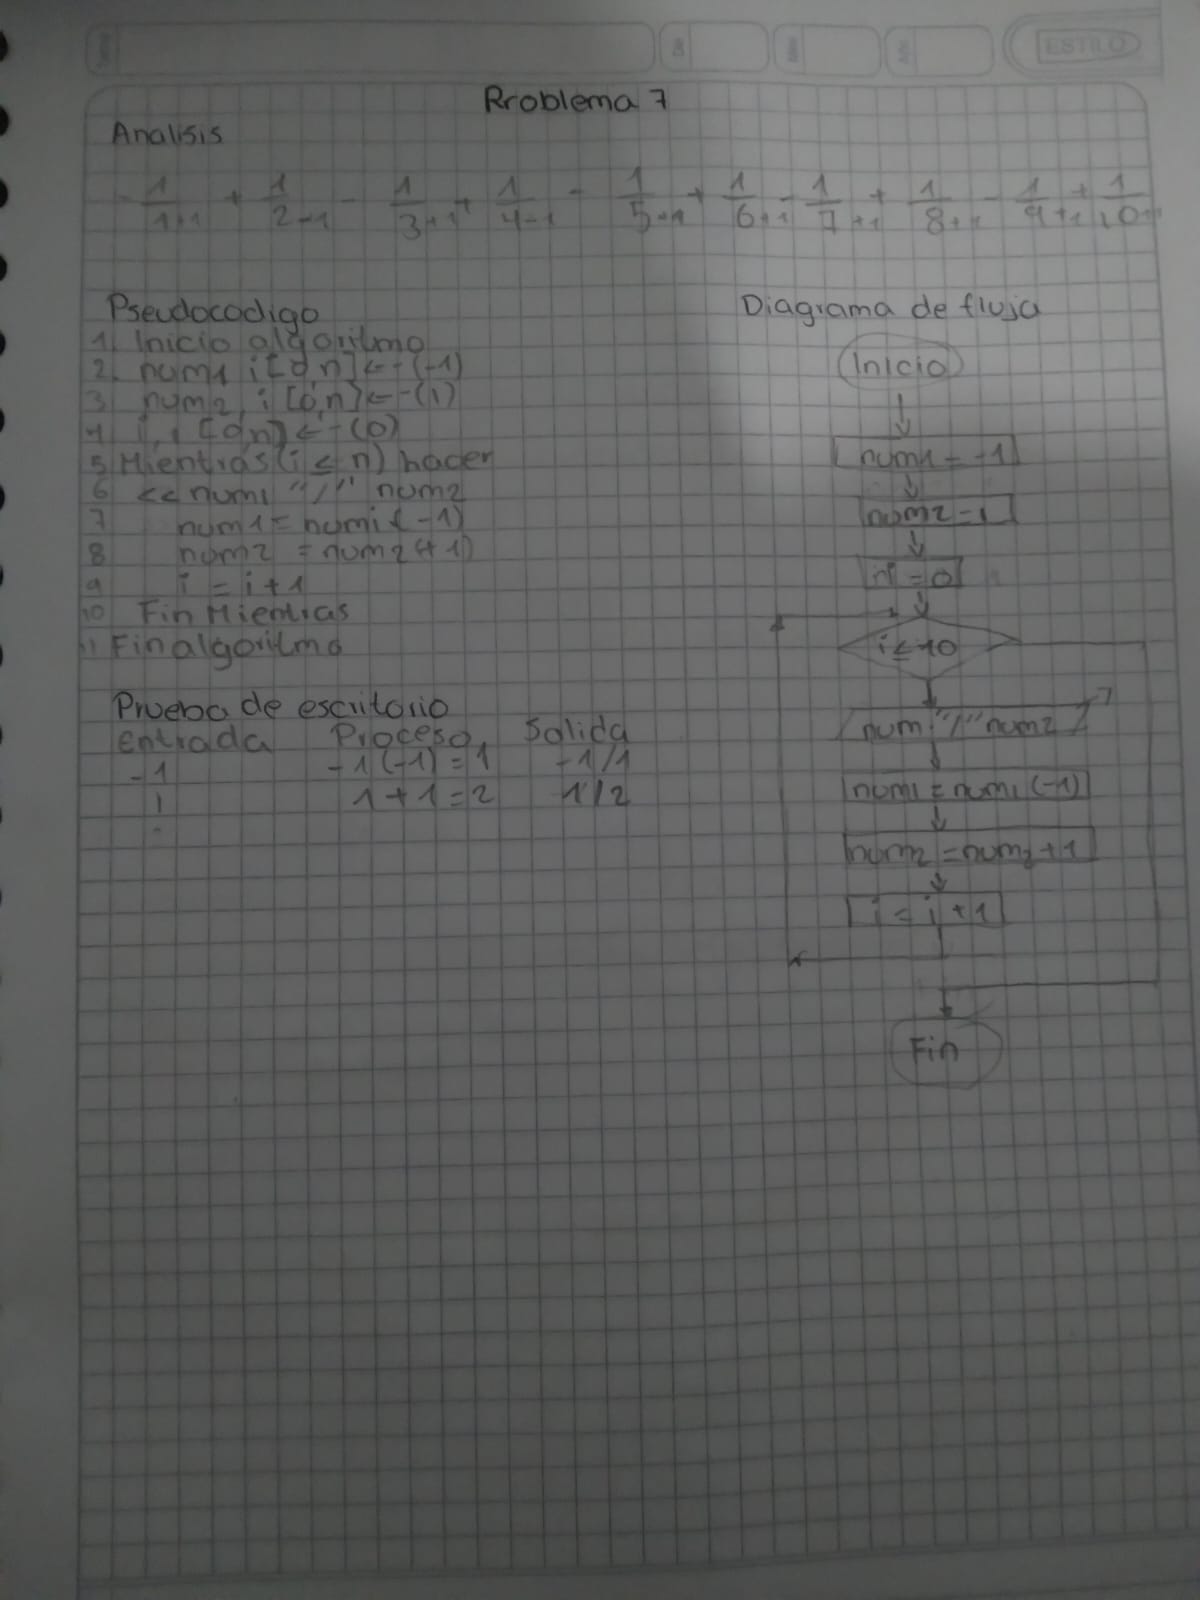 ESTILO
Problema 7
Analisis
- 1/1+1 + 1/2-1 - 1/3+1 + 1/4-1 - 1/5+1 + 1/6+1 - 1/7+1 + 1/8+1 - 1/9+1 + 1/10
Pseudocodigo
1. Inicio algoritmo
2. num1 i[0,n] <- (-1)
3 num2, i [0,n] <- (1)
4 i, i [0,n] <- (0)
5 Mientras (i ≤ n) hacer
6 << num1 "/" num2
7 num1 = num1 (-1)
8 num2 = num2 + 1)
9 i = i + 1
10 Fin Mientras
11 Fin algoritmo
Prueba de escritorio
Entrada Proceso Salida
-1 -1(-1) = 1 -1/1
1 1 + 1 = 2 1/2
Diagrama de flujo
Inicio
num1 = -1
num2 = 1
i = 0
i ≤ 10
num1 "/" num2
num1 = num1 (-1)
num2 = num2 + 1
i = i + 1
Fin